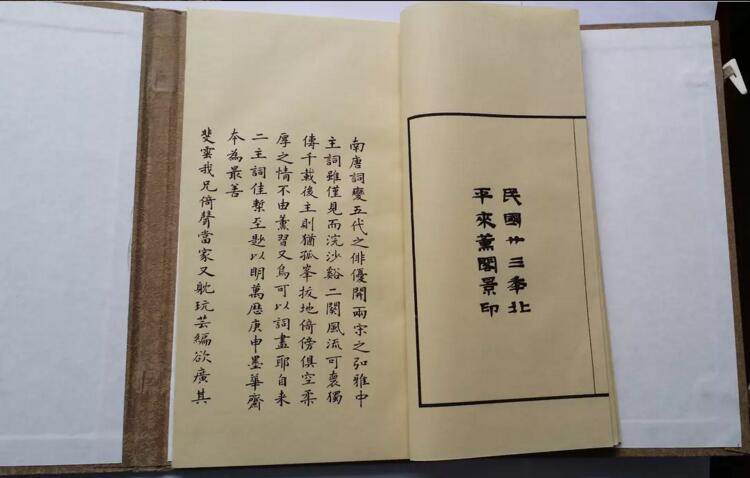 民國卅三年北
平來薰閣景印
南唐詞變五代之俳優開兩宋之弘雅中
主詞雖僅見而浣沙谿二闋風流可褱獨
傳千載後主則猶孤峯拔地倚傍俱空柔
厚之情不由薰習又烏可以詞盡耶自来
二主詞佳槧至尟以明萬曆庚申墨華齋
本為最善
斐雲我兄倚聲當家又躭玩芸編欲廣其